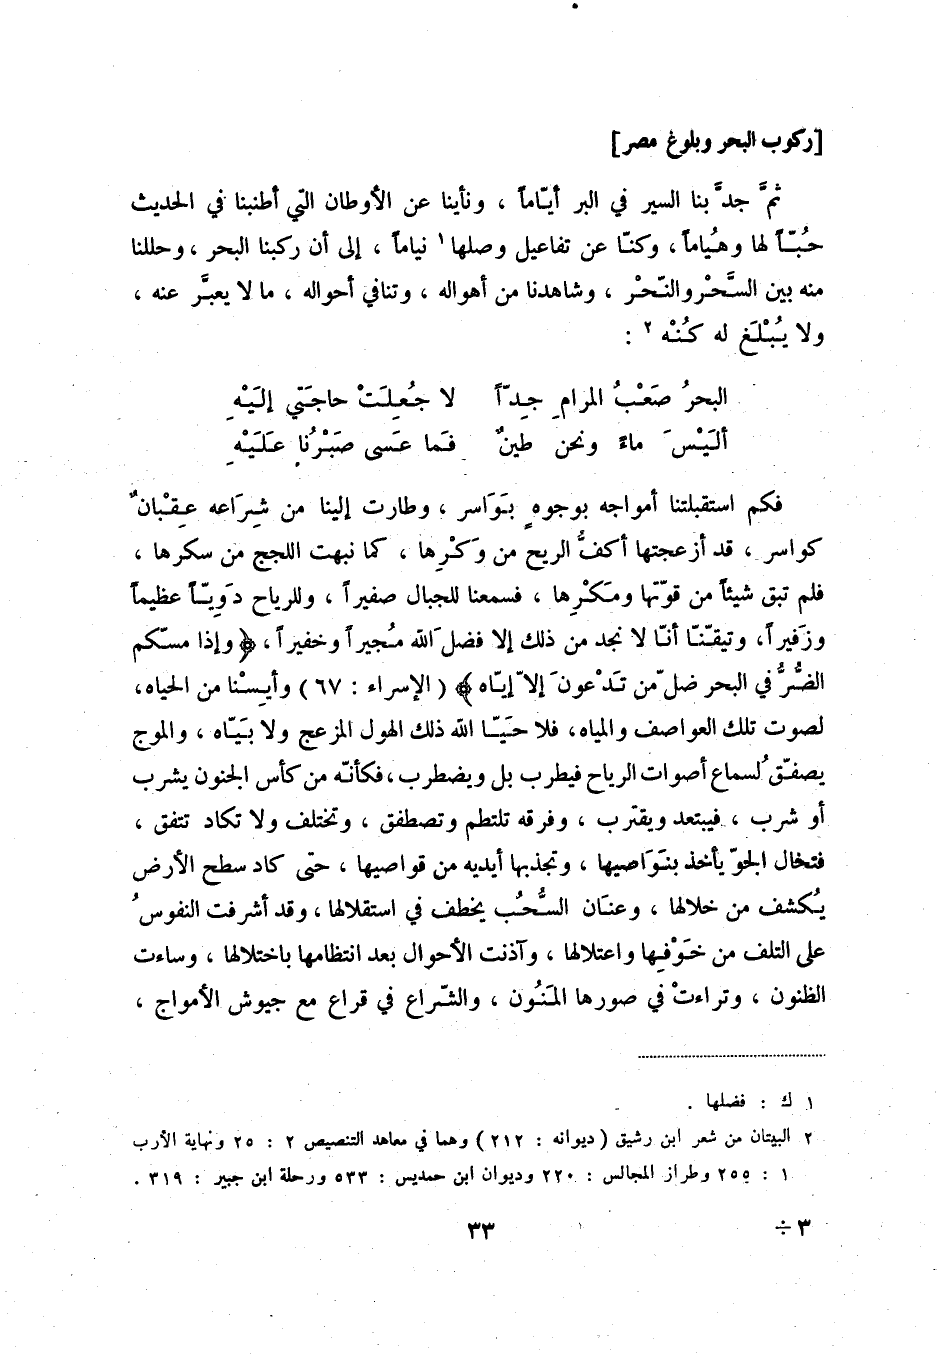 [ركوب البحر وبلوغ مصر]
ثمَّ جدَّ بنا السير في البر أيّاماً ، ونأينا عن الأوطان التي أطنبنا في الحديث
حُبّاً لها وهُياماً، وكنّا عن تفاعيل وصلها ١ نياماً ، إلى أن ركبنا البحر ، وحللنا
منه بين السَّحْر والنّحْر ، وشاهدنا من أهواله ، وتنافي أحواله ، ما لا يعبَّر عنه ،
ولا يُبْلَغ له كُنْه ٢ :
البحرُ صَعْبُ المرامِ جِدّاً لا جُعِلَتْ حاجَتي إلَيْهِ
ألَيْسَ ماءً ونحن طينٌ فَما عَسى صَبْرُنا عَلَيْهِ
فكم استقبلتنا أمواجه بوجوهٍ بَوَاسر ، وطارت إلينا من شِرَاعه عِقْبانٌ
كواسر ، قد أزعجتها أكفُّ الريح من وَكْرِها ، كما نبهت اللجج من سكرها ،
فلم تبق شيئاً من قوّتها ومَكْرِها ، فسمعنا للجبال صفيراً ، وللرياح دَوِيّاً عظيماً
وزَفيراً، وتيقنّا أنّا لا نجد من ذلك إلا فضلَ الله مُجيراً وخفيراً ، ﴿ وإذا مسّكم
الضُّرُّ في البحر ضلّ من تَدْعونَ إلاّ إيّاه ﴾ ( الإسراء : ٦٧ ) وأيِسْنا من الحياه،
لصوت تلك العواصف والمياه، فلا حَيَّا الله ذلك الهول المزعج ولا بَيّاه ، والموج
يصفّقُ لسماع أصوات الرياح فيطرب بل ويضطرب ، فكأنّه من كأس الجنون يشرب
أو شرب ، فيبتعد ويقترب ، وفرقه تلتطم وتصطفق ، وتختلف ولا تكاد تتفق ،
فتخال الجوّ يأخذ بنَوَاصيها ، وتجذبها أيديه من قواصيها ، حتى كاد سطح الأرض
يُكشف من خلالها ، وعنان السُّحُب يخطف في استقلالها ، وقد أشرفت النفوسُ
على التلف من خَوْفِها واعتلالها ، وآذنت الأحوال بعد انتظامها باختلالها ، وساءت
الظنون ، وتراءتْ في صورها المَنُون ، والشّراع في قراع مع جيوش الأمواج ،
١ ك : فضلها .
٢ البيتان من شعر ابن رشيق ( ديوانه : ٢١٢ ) وهما في معاهد التنصيص ٢ : ٢٥ ونهاية الأرب
١ : ٢٥٥ وطراز المجالس : ٢٢٠ وديوان ابن حمديس : ٥٣٣ ورحلة ابن جبير : ٣١٩ .
٣ ÷ ٣٣